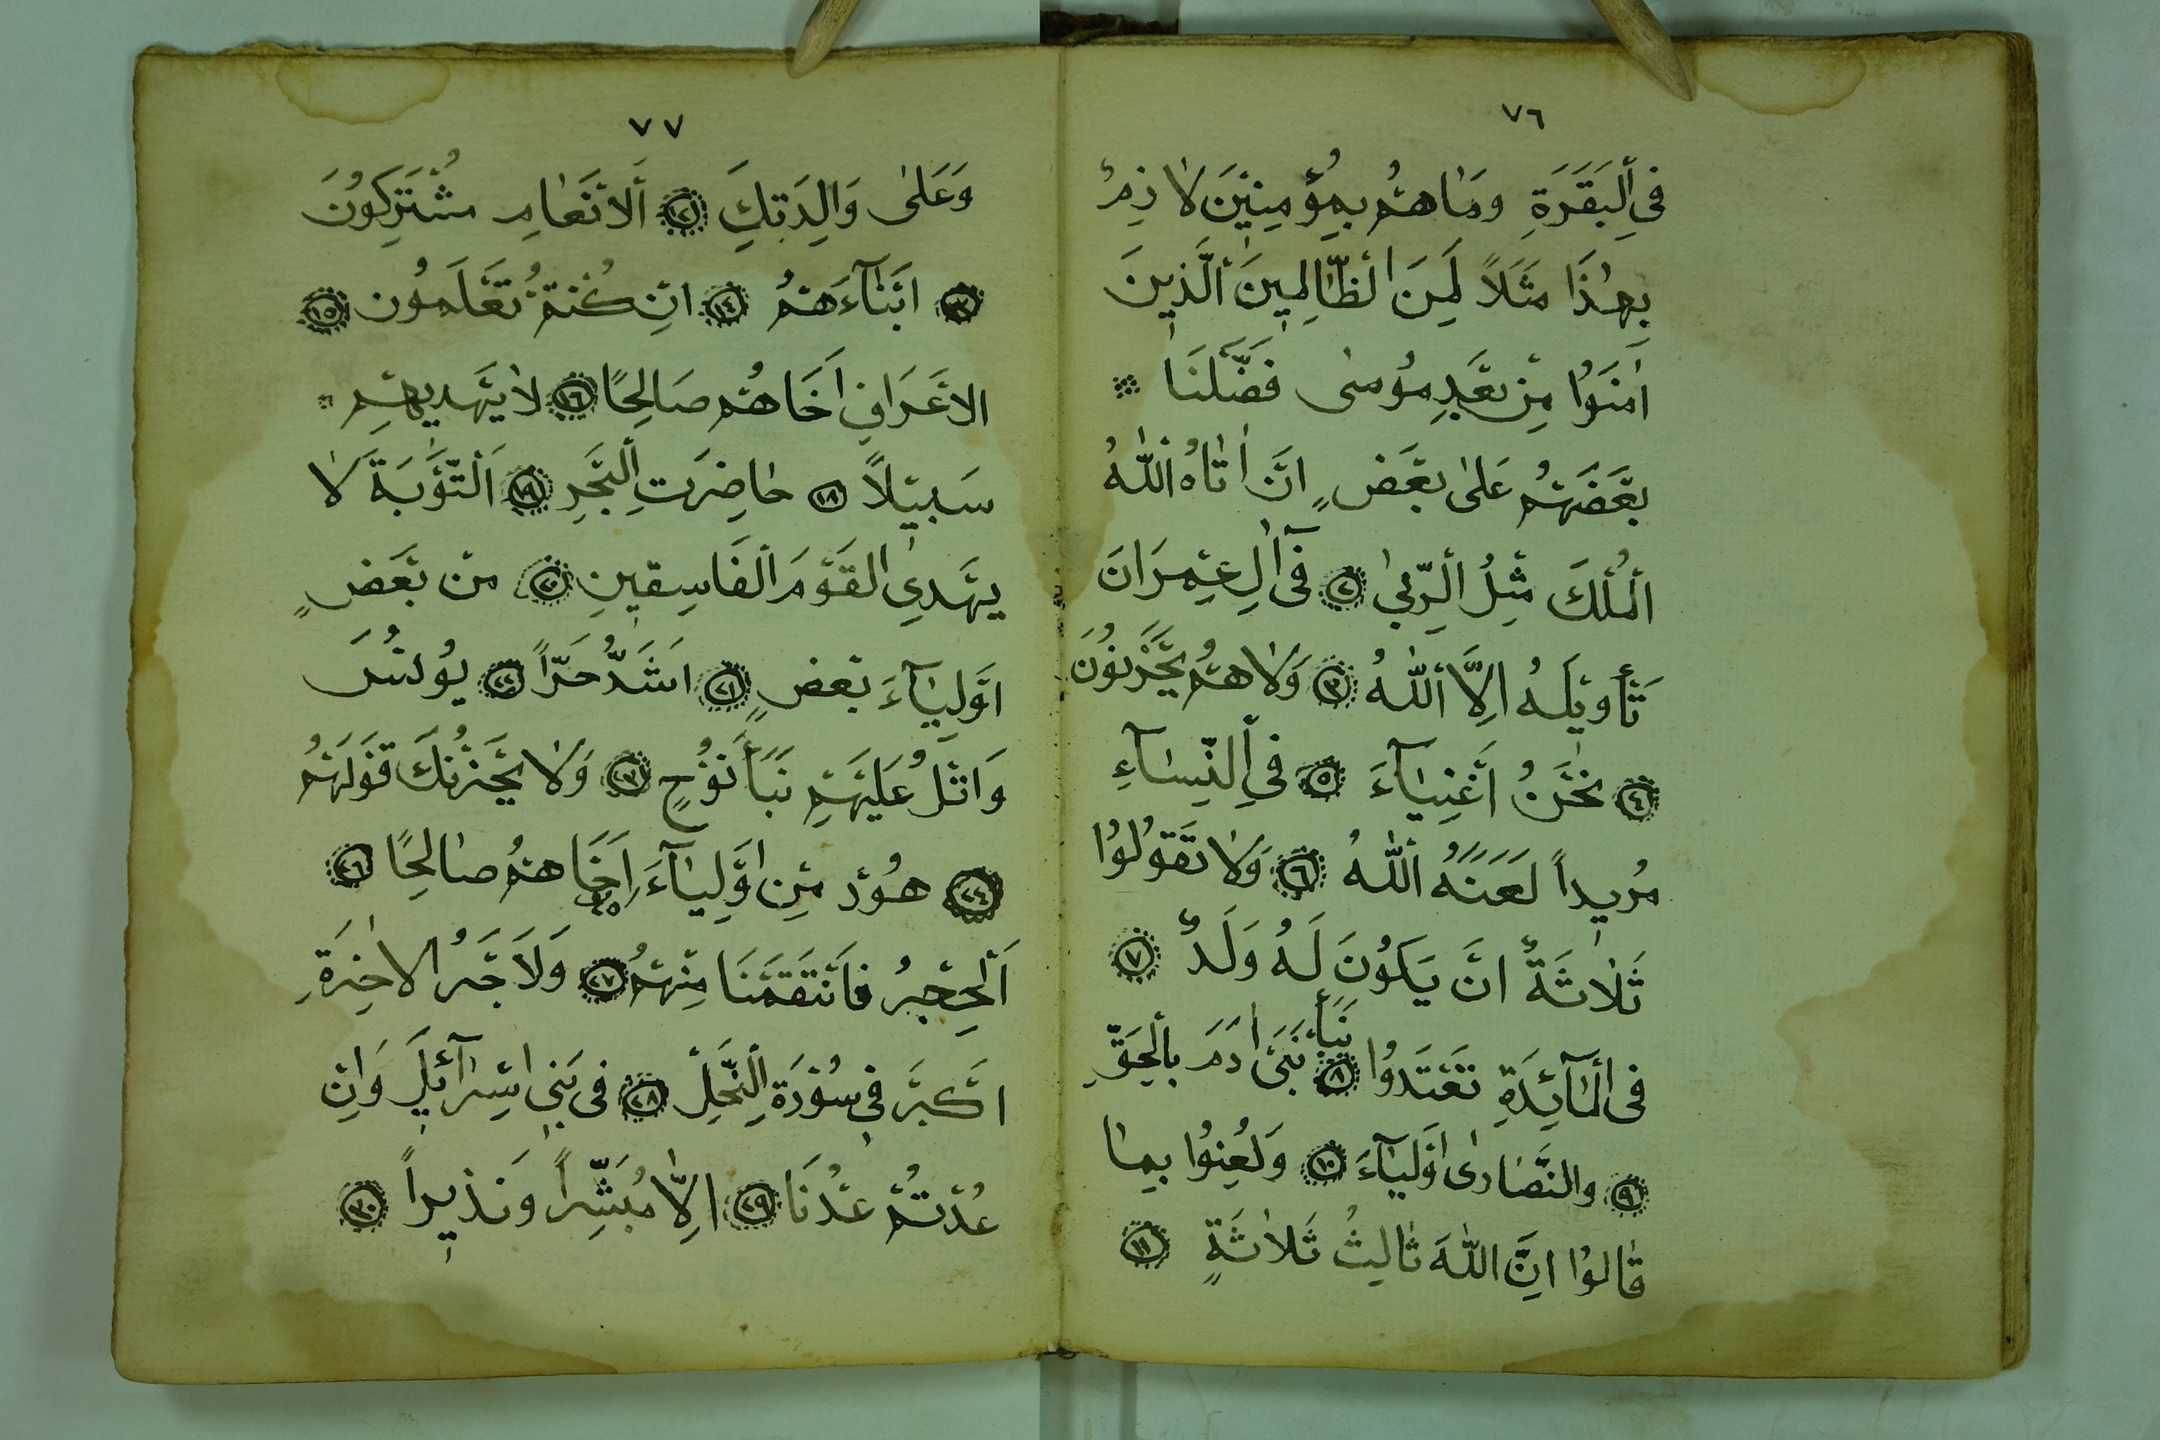 ٧٦
فِى اَلْبَقَرَةِ وَمَاهُمْ بِمُؤْمِنِيْنَ لَازِمْ
بِهٰذَا مَثَلاً لَمِنَ الظَّالِمِينَ اَلَّذِينَ
اٰمَنُوْا مِنْ بَعْدِ مُوْسٰى فَضَّلْنَا
بَعْضَهُمْ عَلٰى بَعْضٍ اَنْ اٰتَاهُ اَللّٰهُ
اَلْمُلْكَ مِثْلُ اَلرِّبٰى ٢ فِى اٰلِ عِمْرَانَ
تَأْوِيْلَهُ اِلَّا اَللّٰهُ ٣ وَلَاهُمْ يَحْزَنُوْنَ
٤ نَحْنُ اَغْنِيَآءَ ٥ فِى اَلنِّسَآءِ
مُرِيداً لَعَنَهُ اَللّٰهُ ٦ وَلَا تَقُوْلُوْا
ثَلَاثَةٌ اَنْ يَكُوْنَ لَهُ وَلَدٌ ٧
فِى اَلْمَآئِدَةِ تَعْتَدُوْا ٨ نَبَأَ نَبَىْ اٰدَمَ بِاَلْحَقِّ
٩ وَالنَّصَارٰى اَوْلِيَآءَ ١٠ وَلُعِنُوْا بِمَا
قَالُوْا اِنَّ اللّٰهَ ثَالِثُ ثَلَاثَةٍ ١١
٧٧
وَعَلٰى وَالِدَتِكَ ١٢ اَلْاَنْعَامِ مُشْتَرِكُوْنَ
١٣ اَبْنَآءَهُمْ ١٤ اِنْ كُنْتُمْ تَعْلَمُوْن ١٥
الْاَعْرَافِ اَخَاهُمْ صَالِحًا ١٦ لَايَهْدِيهِمْ
سَبِيْلاً ١٨ حَاضِرَتِ اَلْبَحْرِ ١٩ اَلتَّوْبَةَ لَا
يَهْدِى الْقَوْمَ اَلْفَاسِقِينِ ٢٠ مِنْ بَعْضٍ
اَوْلِيَآءَ بَعْضٍ ٢١ اَشَدُّ حَرّاً ٢٢ يُوْنُسَ
وَاتْلُ عَلَيْهِمْ نَبَأَ نُوْحٍ ٢٣ وَلَا يَحْزُنْكَ قَوْلُهُمْ
٢٤ هُوْد مِنْ اَوْلِيَآءَ ٢٥ اَخَاهُمْ صَالِحًا ٢٦
اَلْحِجْرُ فَانْتَقَمْنَا مِنْهُمْ ٢٧ وَلَاَجْرُ الْاٰخِرَةِ
اَكْبَرَ فِى سُوْرَةِ اَلنَّحْلِ ٢٨ فِى بَنِى اِسْرَآئِلَ وَاِنْ
عُدْتُمْ عُدْنَا ٢٩ اِلَّا مُبَشِّراً وَنَذِيراً ٣٠